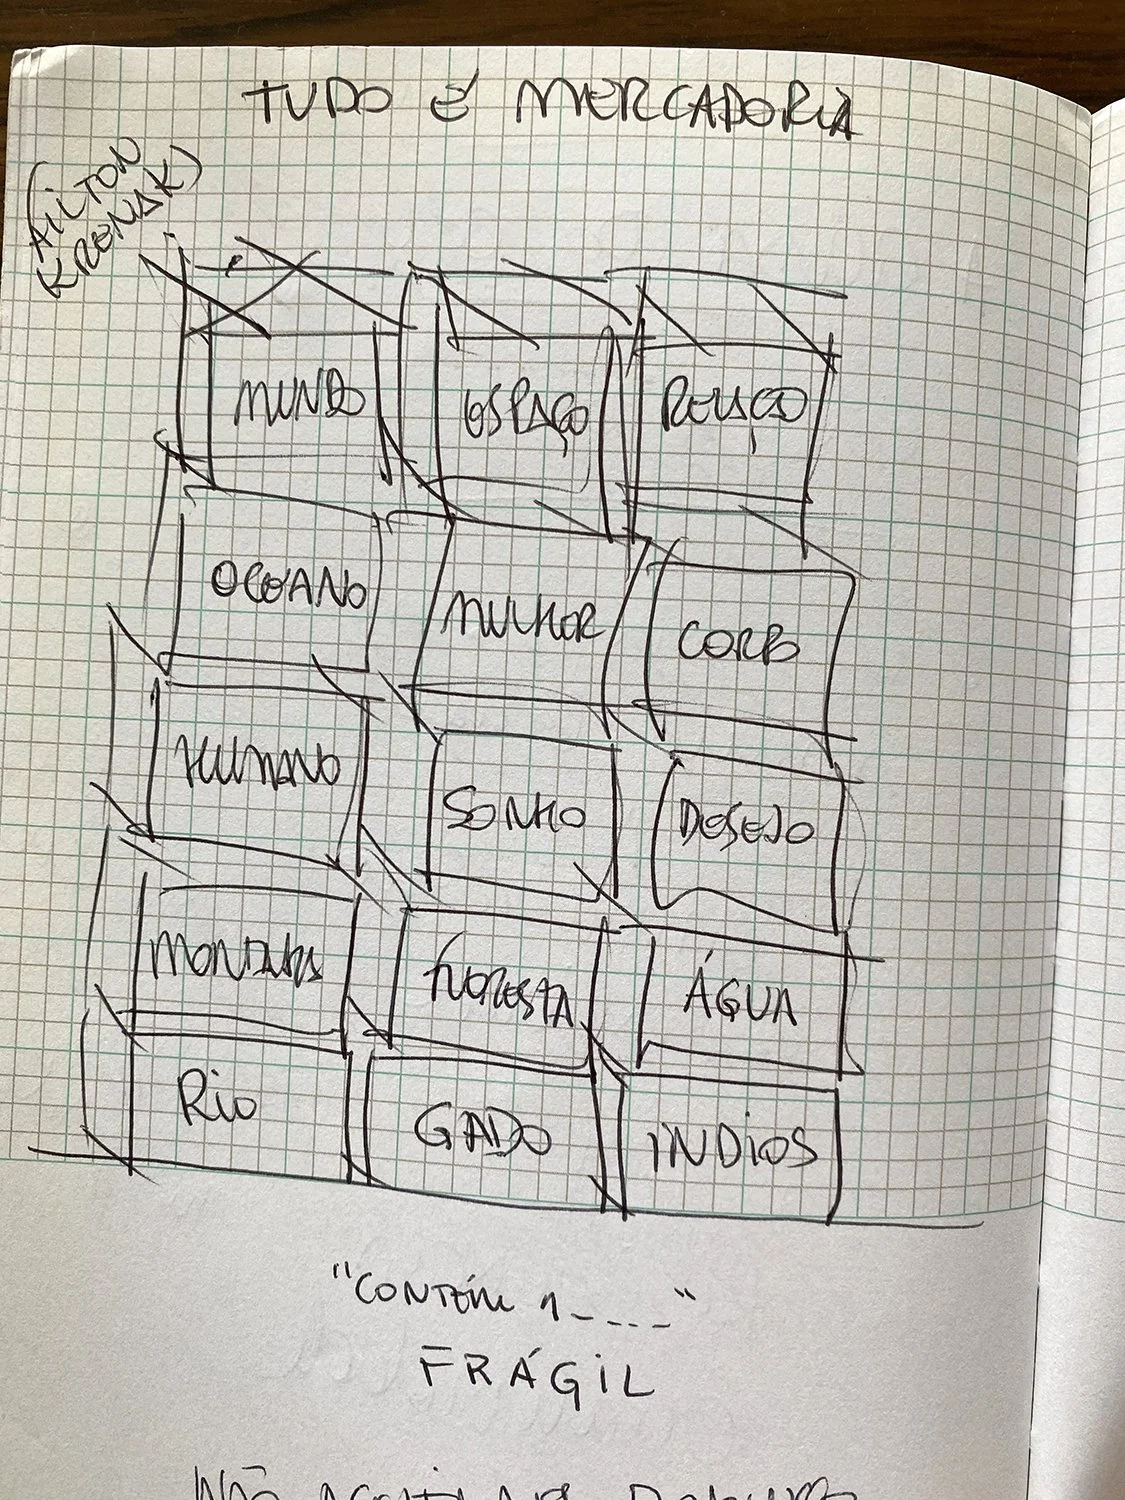 TUDO É MERCADORIA
(AILTON
KRENAK)
MUNDO
ESPAÇO
RELAÇÃO
OCEANO
MULHER
CORPO
HUMANO
SONHO
DESEJO
MONTANHA
FLORESTA
ÁGUA
RIO
GADO
ÍNDIOS
"CONTÉM 1_ _ _ _"
FRÁGIL
NÃO